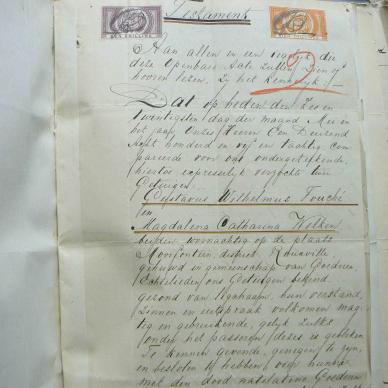 Testament
Aan allen en een iegelyk die
deze Openbare Acte zullen Zien of
hooren lezen. Zy het Kennelyk:—
Dat op heden den Zes en
Twintigsten dag der maand Mei in
het jaar Onzes Heeren Een Duizend
Acht honderd en vyf en Tachtig com
pareerde voor ons ondergetekende,
hiertoe expresselyk verzocht
Getuigen
Gustavus Wilhelmus Fouché
en
Magdalena Catharina
beiden woonachtig op de plaats
Mooifontein district Rouxville
gehuwd in gemeenschap van Goederen,
Echtelieden ons Getuigen bekend
gezond van lighaam, hun verstand,
Zinnen en uitspraak volkomen mag-
tig en gebruikende, gelyk zulks
onder het passeren dezes is gebleken
Te Kennen gevende, genegen te zyn,
en besloten te hebben, over hunne
met den dood natelatene Goederen